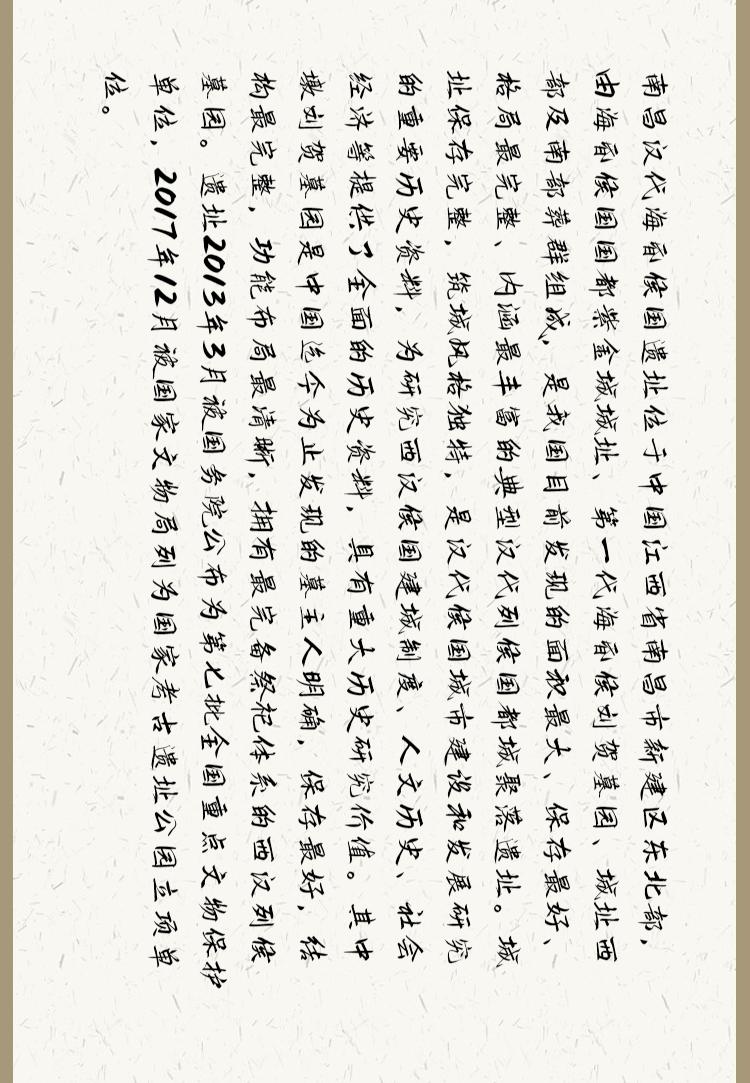 南昌汉代海昏侯国遗址位于中国江西省南昌市新建区东北部，
由海昏侯国国都紫金城城址、第一代海昏侯刘贺墓园、城址西
部及南部葬群组成，是我国目前发现的面积最大、保存最好、
格局最完整、内涵最丰富的典型汉代列侯国都城聚落遗址。城
址保存完整，筑城风格独特，是汉代侯国城市建设和发展研究
的重要历史资料，为研究西汉侯国建城制度、人文历史、社会
经济等提供了全面的历史资料，具有重大历史研究价值。其中
墩刘贺墓园是中国迄今为止发现的墓主人明确，保存最好，结
构最完整，功能布局最清晰，拥有最完备祭祀体系的西汉列侯
墓园。遗址2013年3月被国务院公布为第七批全国重点文物保护
单位，2017年12月被国家文物局列为国家考古遗址公园立项单
位。